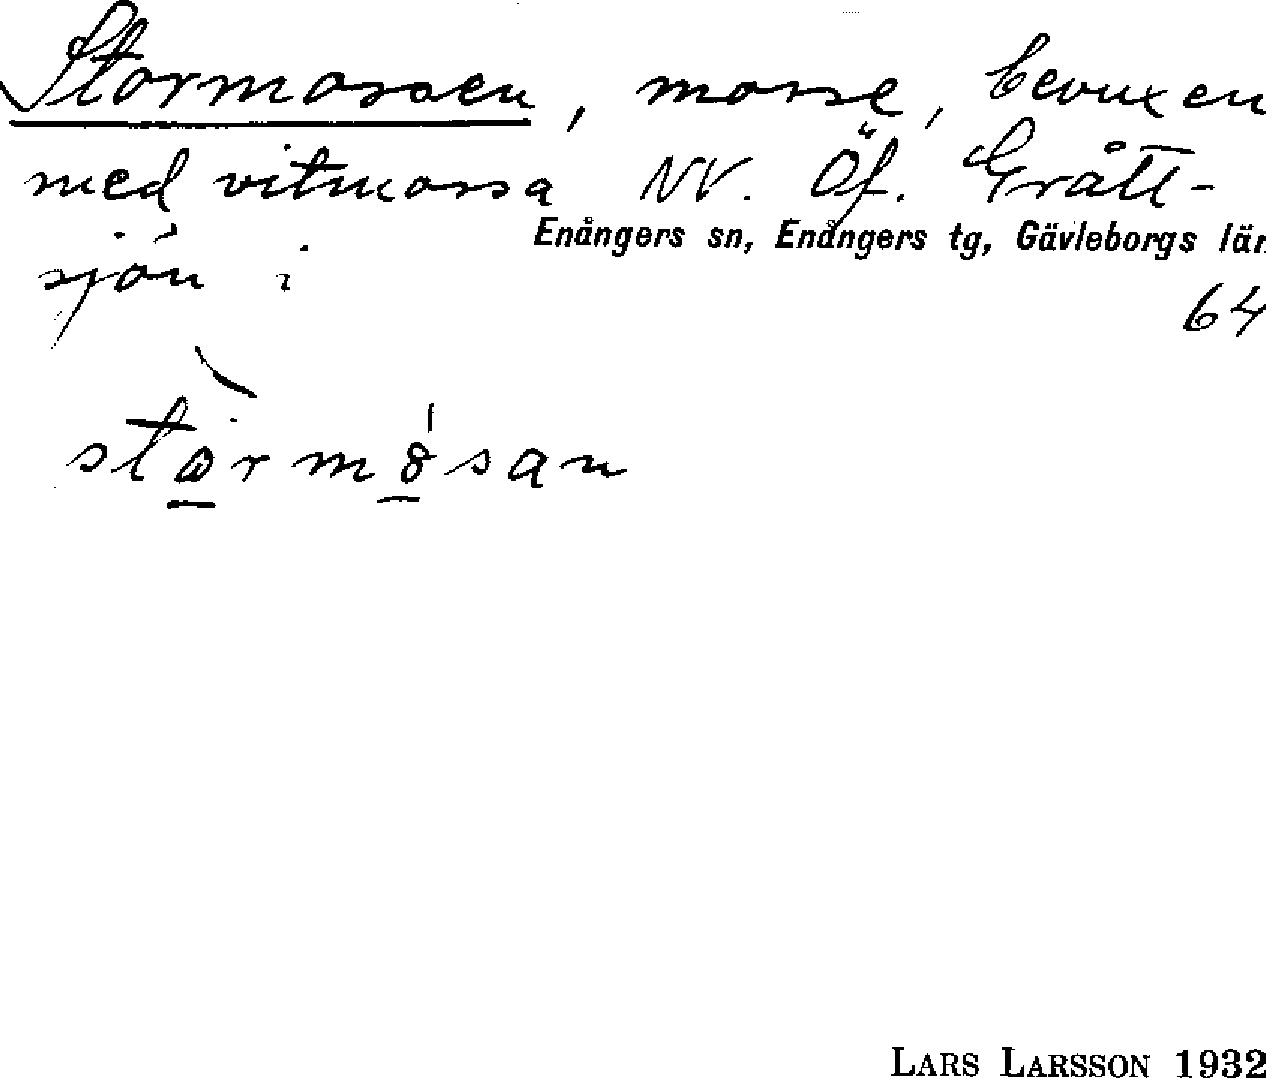 Stormossen, mosse, bevuxen
med vitmossa NV. Öf. Grått-
sjön i Enångers sn, Enångers tg, Gävleborgs län
64
LARS LARSSON 1932